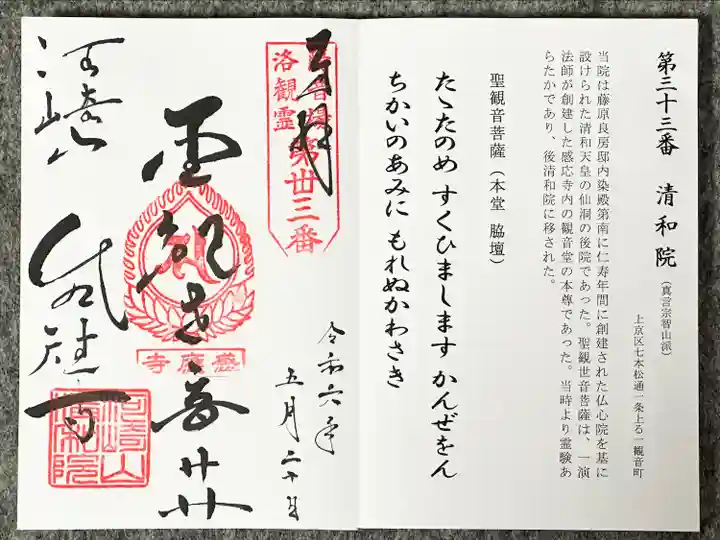 第三十三番 清和院（真言宗智山派）
上京区七本松通一条上る一観音町
当院は藤原良房邸内染殿第南に仁寿年間に創建された仏心院を基に
設けられた清和天皇の仙洞の後院であった。聖観世音菩薩は、一演
法師が創建した感応寺内の観音堂の本尊であった。当時より霊験あ
らたかであり、後清和院に移された。
聖観音菩薩（本堂 脇壇）
たゝたのめ すくひまします かんぜをん
ちかいのあみに もれぬかわさき
奉拝
洛観霊
第卅三番
令和六年
五月二十日
聖観世音
感應寺
河崎山